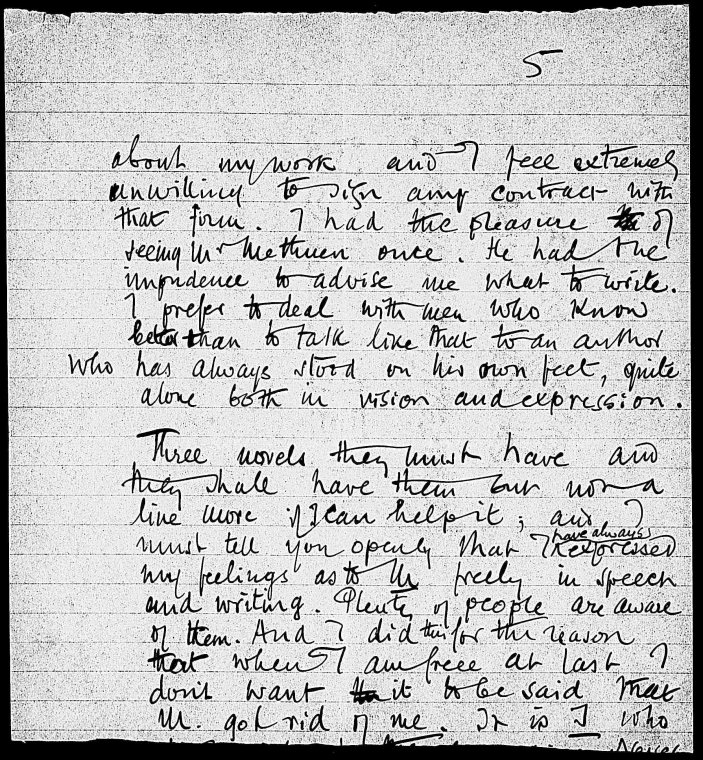 5
about my work and I feel extremely
unwilling to sign any contract with
that firm. I had the pleasure of
seeing Mr Methuen once. He had the
impudence to advise me what to write.
I prefer to deal with men who know
better than to talk like that to an author
who has always stood on his own feet, quite
alone both in vision and expression.
Three novels they must have and
they shall have them but not a
line more if I can help it; and I
must tell you openly that I have always expressed
my feelings as to M freely in speech
and writing. Plenty of people are aware
of them. And I did this for the reason
that when I am free at last I
don't want it to be said that
M. got rid of me. It is I who
Never